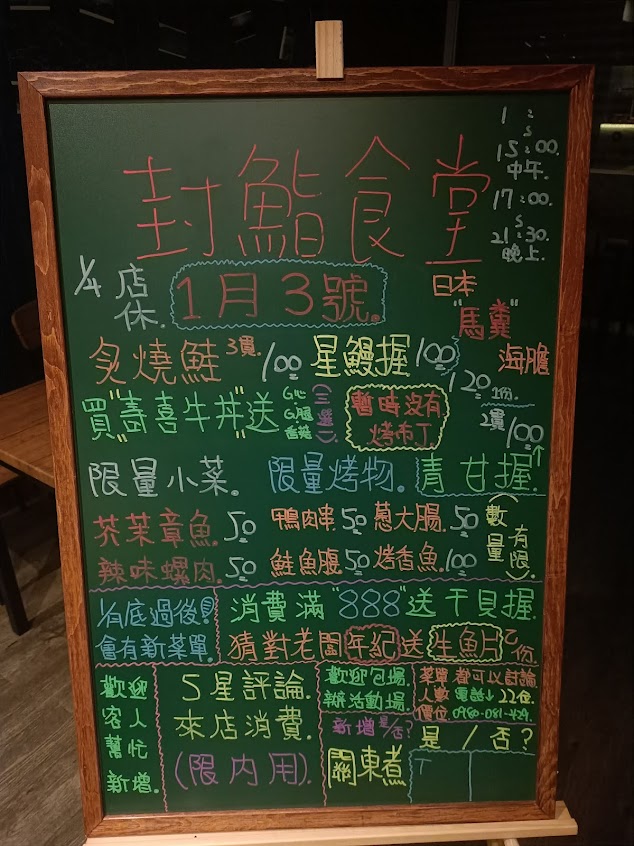 封鮨食堂
1:
s
15:00.
中午.
17:00.
s
21:30.
晚上.
1/4 店休.
1月3號。
日本
"馬糞"
海膽
炙燒鮭 3貫. 100
星鰻握 100
120 1份.
買"壽喜牛丼"送
G心
G腿
香菇
(三選一)
暫時沒有
烤布丁
2貫 100
限量小菜。
限量烤物。
青甘握.
(數量有限)
芥茉章魚. 50
鴨肉串. 50
蔥大腸. 50
辣味螺肉. 50
鮭魚腹. 50
烤香魚. 100
1月底過後!
會有新菜單.
消費滿"888"送干貝握.
猜對老闆年紀送生魚片乙份.
歡迎
客人
幫忙
新增。
5星評論.
來店消費.
(限內用).
歡迎包場.
辦活動場.
菜單都可以討論
人數 電話↓ 22位.
價位. 0960-081-429.
新增是/否?
關東煮
是/否?